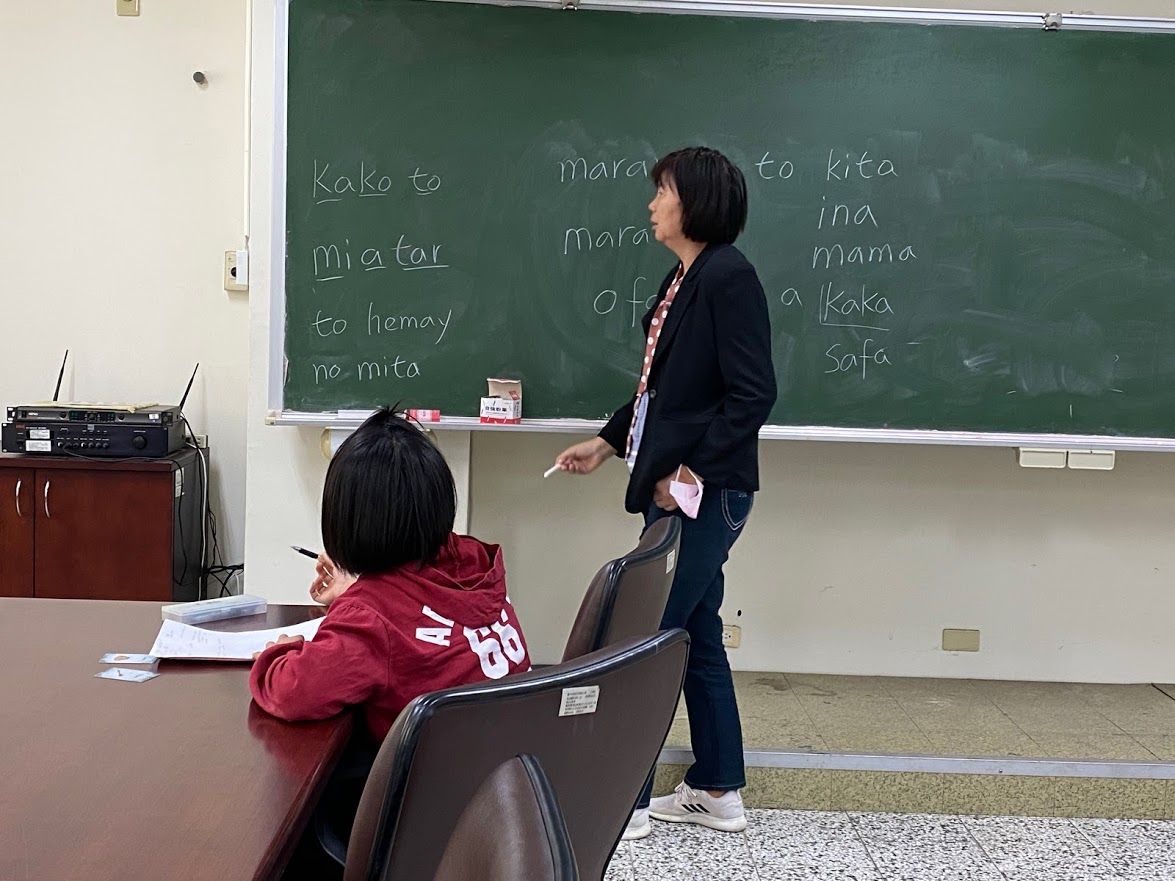 Kako to
mi a tar
to hemay
no mita
mara to kita
ina
mara
mama
a kaka
safa
66